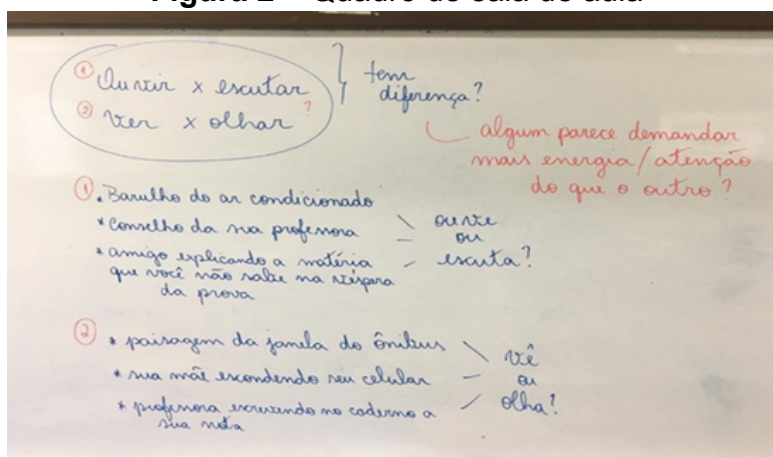 Figura 2 – Quadro de sala de aula
① Ouvir x escutar
② Ver x olhar ?
tem
diferença?
algum parece demandar
mais energia/atenção
do que o outro?
① • Barulho do ar condicionado
* Conselho da sua professora
* amigo explicando a matéria
que você não sabe na véspera
da prova
ouve
ou
escuta?
② * paisagem da janela do ônibus
* sua mãe escondendo seu celular
* professora escrevendo no caderno a
sua nota
vê
ou
olha?